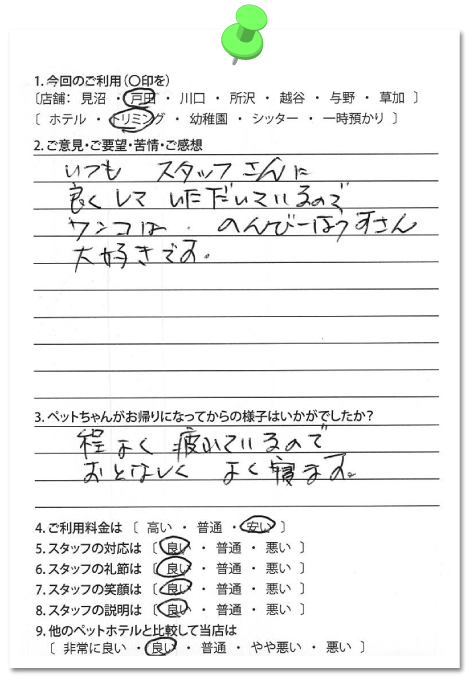 1. 今回のご利用(〇印を)
〔店舗： 見沼 ・ 戸田 ・ 川口 ・ 所沢 ・ 越谷 ・ 与野 ・ 草加 〕
〔 ホテル ・ トリミング ・ 幼稚園 ・ シッター ・ 一時預かり 〕
2. ご意見・ご要望・苦情・ご感想
いつも スタッフさんに
良くして いただいているので
ワンコは のんびーほうすさん
大好きです。
3. ペットちゃんがお帰りになってからの様子はいかがでしたか？
程よく 疲れているので
おとなしく よく寝ます。
4. ご利用料金は 〔 高い ・ 普通 ・ 安い 〕
5. スタッフの対応は 〔 良い ・ 普通 ・ 悪い 〕
6. スタッフの礼節は 〔 良い ・ 普通 ・ 悪い 〕
7. スタッフの笑顔は 〔 良い ・ 普通 ・ 悪い 〕
8. スタッフの説明は 〔 良い ・ 普通 ・ 悪い 〕
9. 他のペットホテルと比較して当店は
〔 非常に良い ・ 良い ・ 普通 ・ やや悪い ・ 悪い 〕